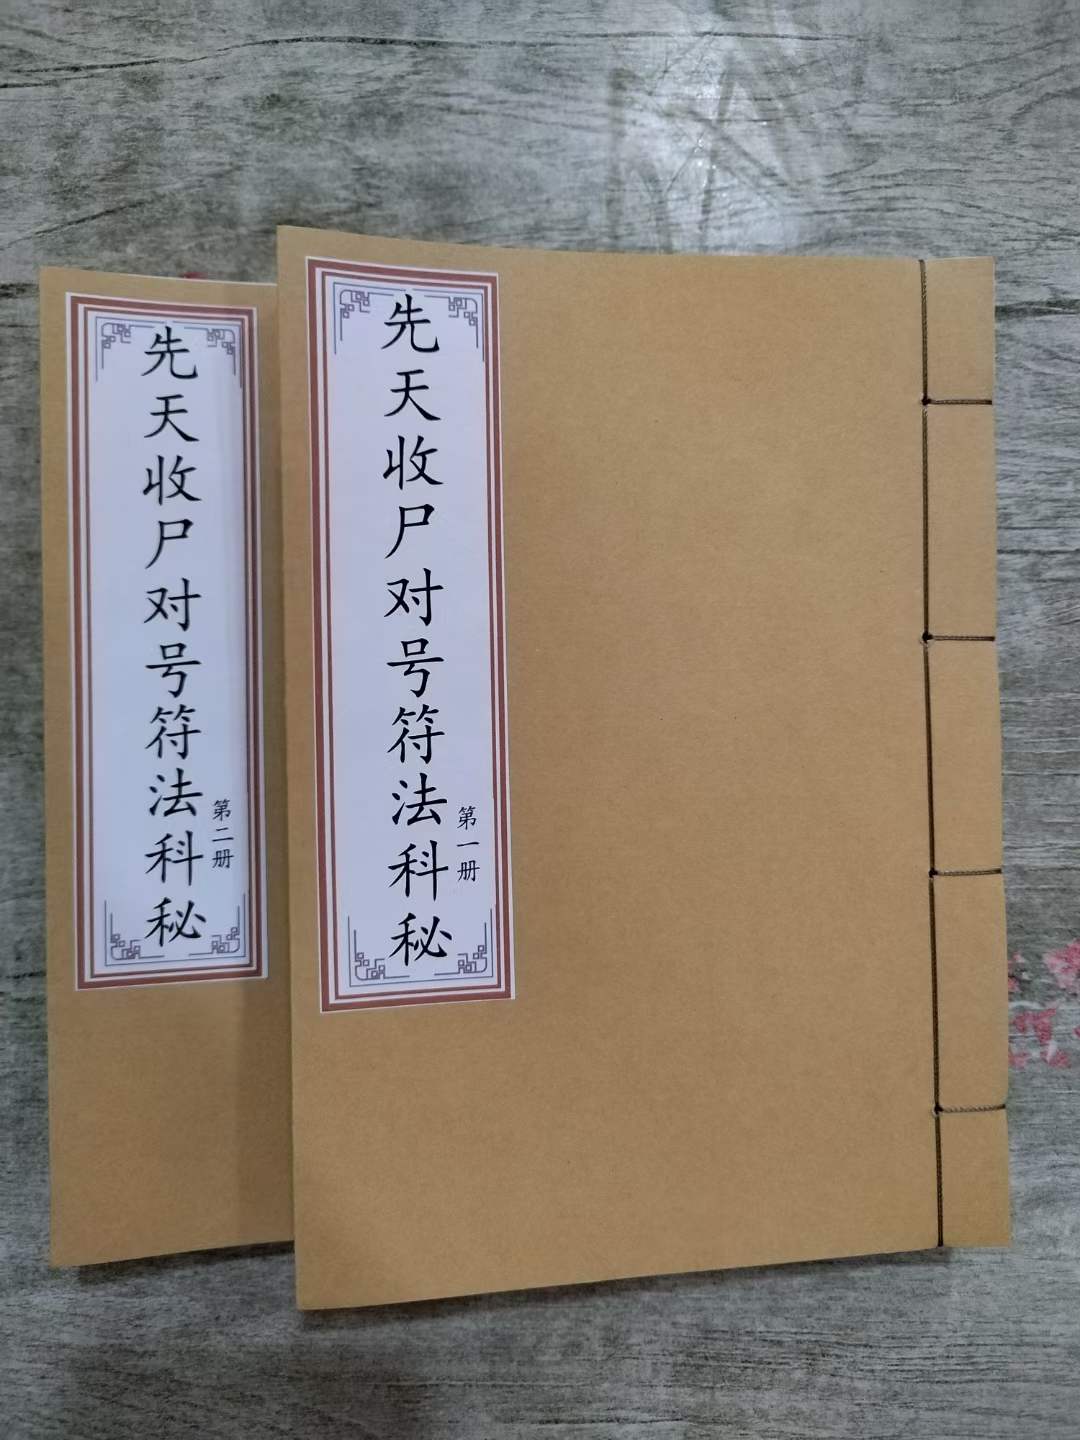 先天收尸对号符法科秘
第一册
先天收尸对号符法科秘
第二册